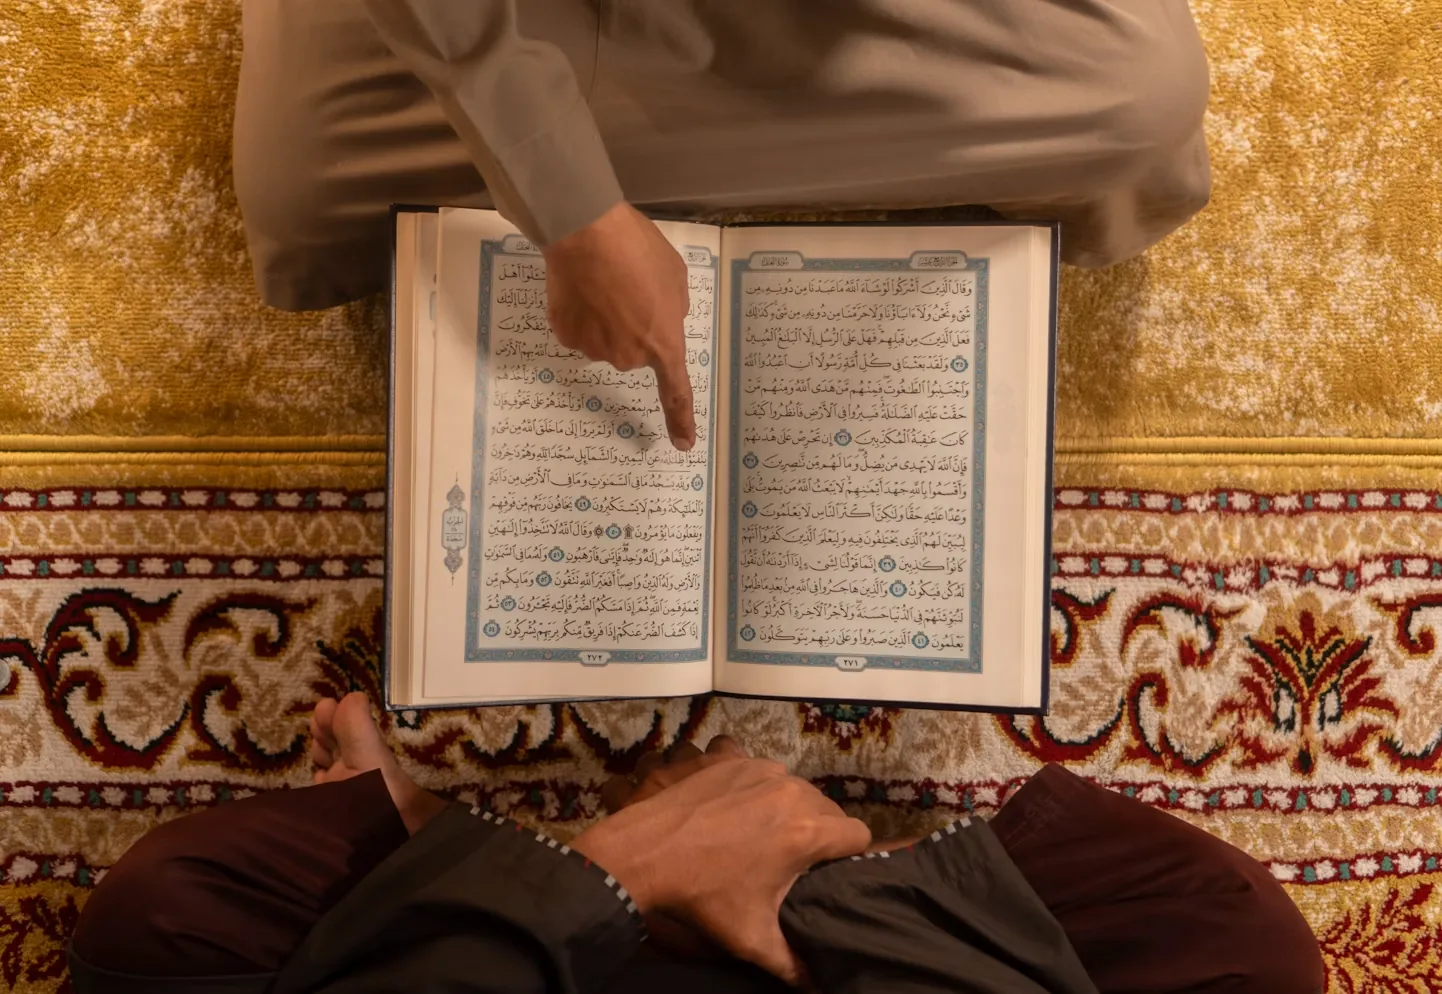 الجزء الرابع عشر سورة النحل
وقال الذين أشركوا لو شاء الله ما عبدنا من دونه من
شيء نحن ولا ءاباؤنا ولا حرمنا من دونه من شيء كذلك
فعل الذين من قبلهم فهل على الرسل إلا البلٰغ المبين
٣٥ ولقد بعثنا في كل أمة رسولا أن اعبدوا الله
واجتنبوا الطٰغوت فمنهم من هدى الله ومنهم من
حقت عليه الضلٰلة فسيروا في الأرض فانظروا كيف
كان عٰقبة المكذبين ٣٦ إن تحرص على هدىٰهم
فإن الله لا يهدي من يضل وما لهم من نٰصرين ٣٧
وأقسموا بالله جهد أيمٰنهم لا يبعث الله من يموت بلى
وعدا عليه حقا ولٰكن أكثر الناس لا يعلمون ٣٨
ليبين لهم الذي يختلفون فيه وليعلم الذين كفروا أنهم
كانوا كٰذبين ٣٩ إنما قولنا لشيء إذا أردنٰه أن نقول
له كن فيكون ٤٠ والذين هاجروا في الله من بعد ما ظلموا
لنبوئنهم في الدنيا حسنة ولأجر الآخرة أكبر لو كانوا
يعلمون ٤١ الذين صبروا وعلى ربهم يتوكلون ٤٢
٢٧١
وما فسٔلوا أهل
الذكر وأنزلنا إليك
يتفكرون
يخسف الله بهم الأرض
من حيث لا يشعرون ٤٥ أو يأخذهم
في هم بمعجزين ٤٦ أو يأخذهم على تخوف فإن
رحيم ٤٧ أولم يروا إلى ما خلق الله من شيء
يتفيؤا ظلٰله عن اليمين والشمائل سجدا لله وهم دٰخرون
٤٨ ولله يسجد ما في السمٰوٰت وما في الأرض من دابة
والملٰئكة وهم لا يستكبرون ٤٩ يخافون ربهم من فوقهم
ويفعلون ما يؤمرون ۩ ٥٠ ۞ وقال الله لا تتخذوا إلٰهين
اثنين إنما هو إلٰه وٰحد فإيٰي فارهبون ٥١ وله ما في السمٰوٰت
والأرض وله الدين واصبا أفغير الله تتقون ٥٢ وما بكم من
نعمة فمن الله ثم إذا مسكم الضر فإليه تجٔرون ٥٣ ثم
إذا كشف الضر عنكم إذا فريق منكم بربهم يشركون ٥٤
٢٧٢